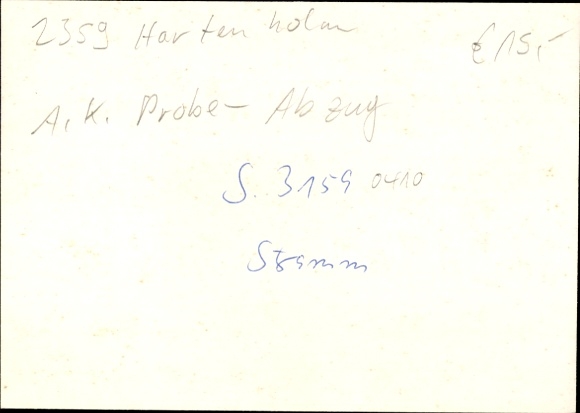 2359 Hartenholm € 15,-
A.K. Probe- Abzug
S. 3159 0410
Stramm